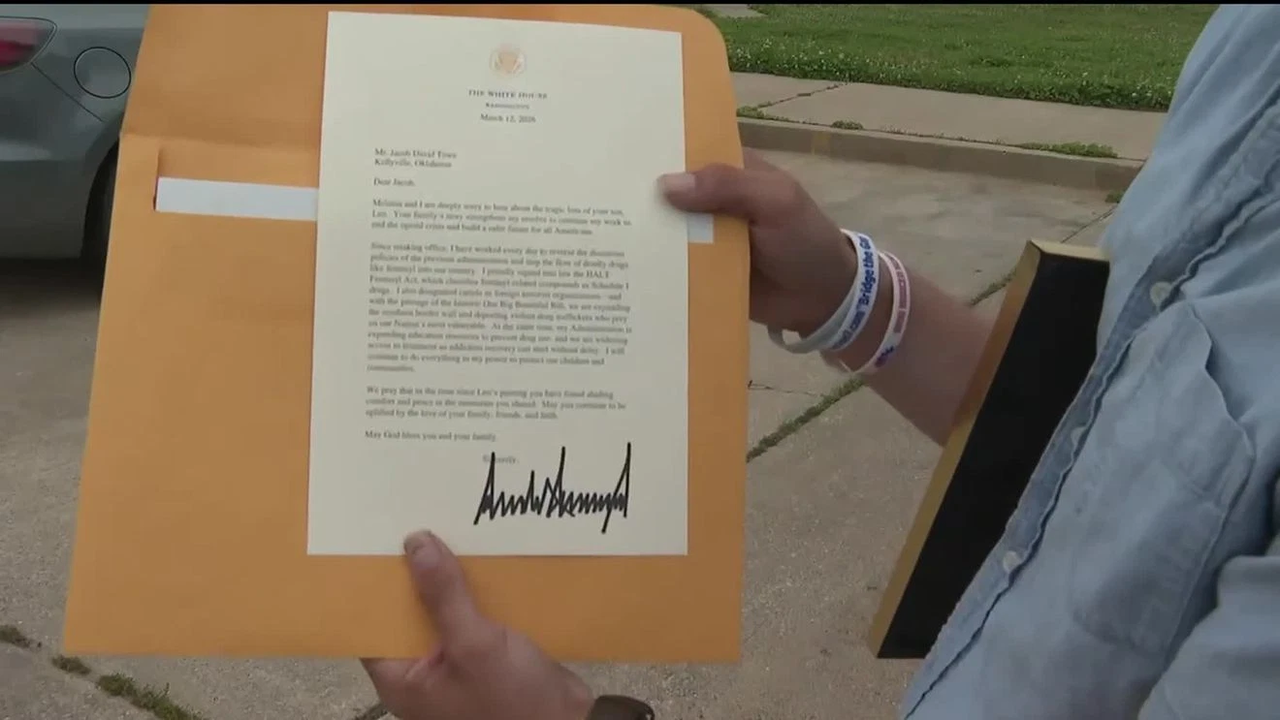 THE WHITE HOUSE
WASHINGTON
March 12, 2026
Mr. Jacob David Towe
Kellyville, Oklahoma
Dear Jacob,
Melania and I are deeply sorry to hear about the tragic loss of your son,
Leo. Your family's story strengthens my resolve to continue my work to
end the opioid crisis and build a safer future for all Americans.
Since taking office, I have worked every day to reverse the disastrous
policies of the previous administration and stop the flow of deadly drugs
like fentanyl into our country. I proudly signed into law the HALT
Fentanyl Act, which classifies fentanyl-related compounds as Schedule I
drugs. I also designated cartels as foreign terrorist organizations and
with the passage of the historic One Big Beautiful Bill, we are expanding
the southern border wall and deporting violent drug traffickers who prey
on our Nation's most vulnerable. At the same time, my Administration is
expanding education resources to prevent drug use, and we are widening
access to treatment so addiction recovery can start without delay. I will
continue to do everything in my power to protect our children and
communities.
We pray that in the time since Leo's passing you have found abiding
comfort and peace in the memories you shared. May you continue to be
uplifted by the love of your family, friends, and faith.
May God bless you and your family.
Sincerely,
"Bridge the